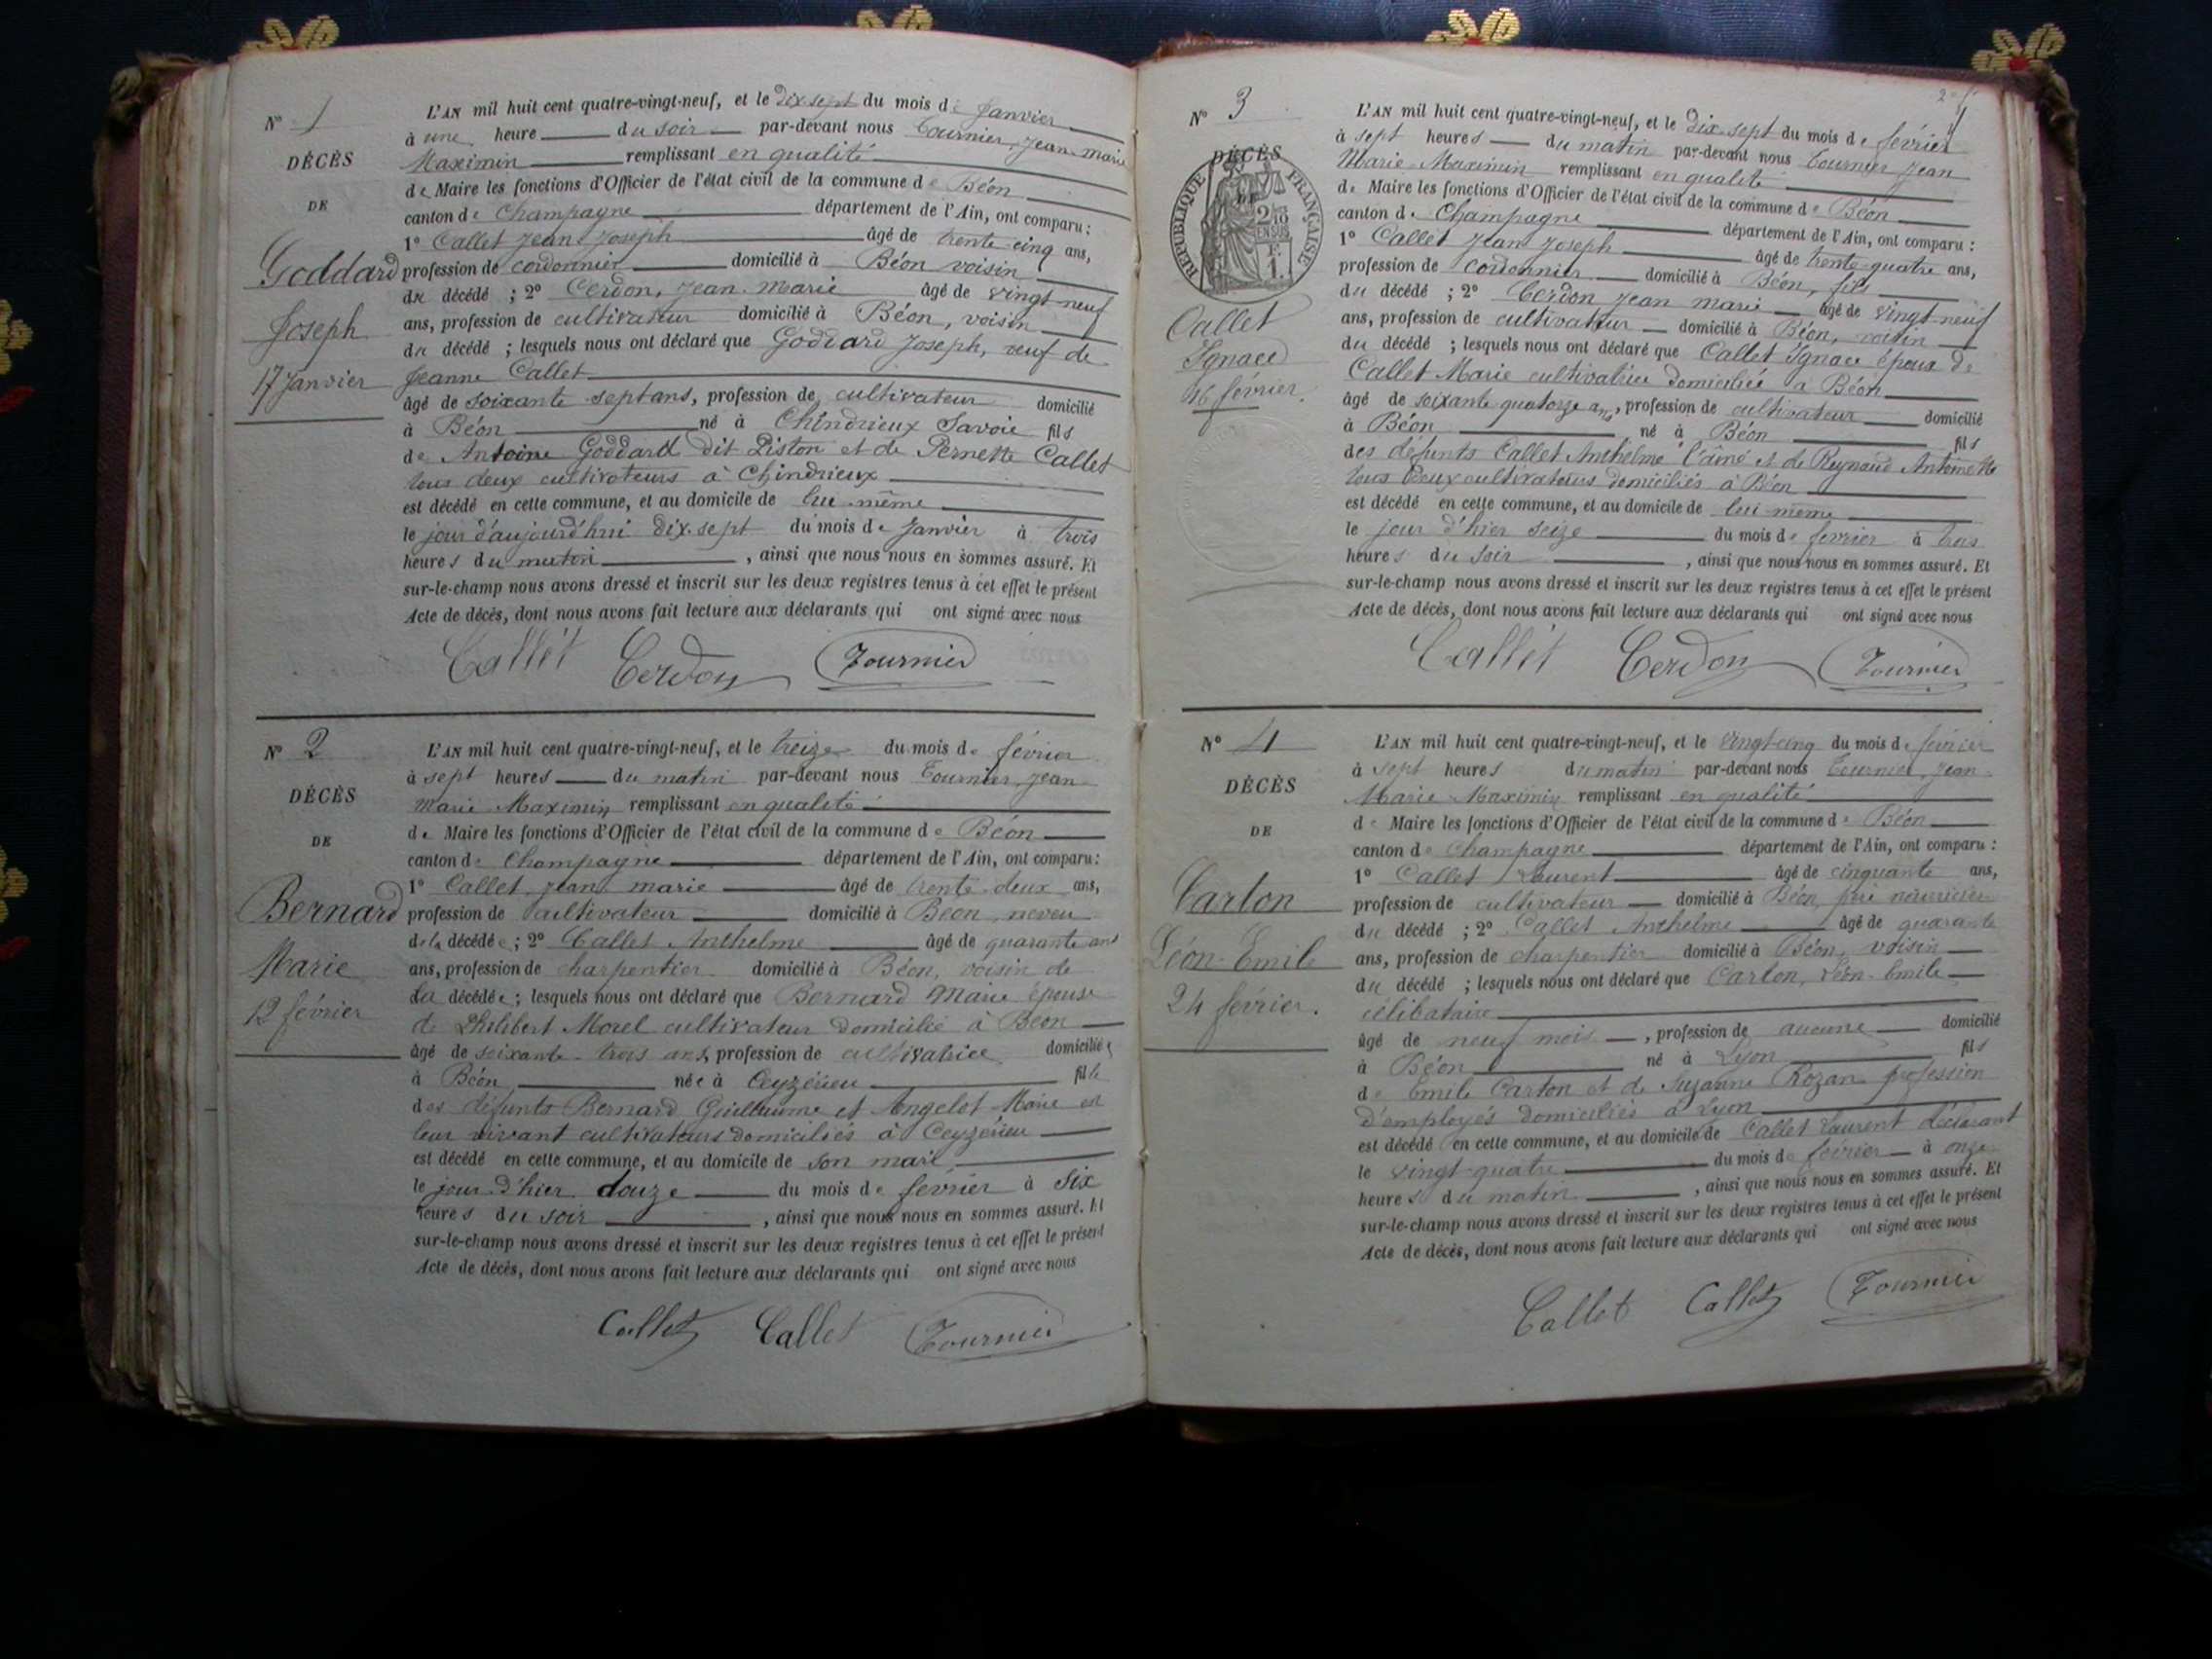 N° 1
DÉCÈS
DE
Goddard
Joseph
17 Janvier
L'AN mil huit cent quatre-vingt-neuf, et le dix sept du mois de Janvier
à une heure du soir par-devant nous Tournier, Jean-Marie
Maximin remplissant en qualité
de Maire les fonctions d'Officier de l'état civil de la commune de Béon
canton de Champagne département de l'Ain, ont comparu :
1° Callet Jean Joseph âgé de trente-cinq ans,
profession de cordonnier domicilié à Béon voisin
du décédé ; 2° Cerdon, Jean-Marie âgé de vingt-neuf
ans, profession de cultivateur domicilié à Béon, voisin
du décédé ; lesquels nous ont déclaré que Goddard Joseph, veuf de
Jeanne Callet
âgé de soixante sept ans, profession de cultivateur domicilié
à Béon né à Chindrieux Savoie fils
de Antoine Goddard dit Piston et de Pernette Callet
tous deux cultivateurs à Chindrieux
est décédé en cette commune, et au domicile de lui-même
le jour d'aujourd'hui dix-sept du mois de Janvier à trois
heures du matin , ainsi que nous nous en sommes assuré. Et
sur-le-champ nous avons dressé et inscrit sur les deux registres tenus à cet effet le présent
Acte de décès, dont nous avons fait lecture aux déclarants qui ont signé avec nous
Callet Cerdon Tournier
N° 2
DÉCÈS
DE
Bernard
Marie
12 février
L'AN mil huit cent quatre-vingt-neuf, et le treize du mois de février
à sept heures du matin par-devant nous Tournier, Jean-
Marie Maximin remplissant en qualité
de Maire les fonctions d'Officier de l'état civil de la commune de Béon
canton de Champagne département de l'Ain, ont comparu :
1° Callet, Jean marie âgé de trente-deux ans,
profession de cultivateur domicilié à Béon, neveu
de la décédée ; 2° Callet Anthelme âgé de quarante ans
ans, profession de charpentier domicilié à Béon, voisin de
la décédée ; lesquels nous ont déclaré que Bernard Marie épouse
de Philibert Morel cultivateur domicilié à Béon
âgé de soixante-trois ans, profession de cultivatrice domiciliée
à Béon née à Ceyzérieu fille
des défunts Bernard Guillaume et Angelot Marie en
leur vivant cultivateurs domiciliés à Ceyzérieu
est décédé en cette commune, et au domicile de son mari
le jour d'hier douze du mois de février à six
heures du soir , ainsi que nous nous en sommes assuré. Et
sur-le-champ nous avons dressé et inscrit sur les deux registres tenus à cet effet le présent
Acte de décès, dont nous avons fait lecture aux déclarants qui ont signé avec nous
Callet Callet Tournier
N° 3
DÉCÈS
DE
RÉPUBLIQUE FRANÇAISE
2/10 EN SUS
F. 1.
Callet
Ignace
16 février
L'AN mil huit cent quatre-vingt-neuf, et le dix-sept du mois de février
à sept heures du matin par-devant nous Tournier Jean
Marie Maximin remplissant en qualité
de Maire les fonctions d'Officier de l'état civil de la commune de Béon
canton de Champagne département de l'Ain, ont comparu :
1° Callet Jean Joseph âgé de trente-quatre ans,
profession de cordonnier domicilié à Béon, fils
du décédé ; 2° Cerdon Jean marie âgé de vingt-neuf
ans, profession de cultivateur domicilié à Béon, voisin
du décédé ; lesquels nous ont déclaré que Callet Ignace époux de
Callet Marie cultivatrice domiciliée à Béon
âgé de soixante quatorze ans, profession de cultivateur domicilié
à Béon né à Béon fils
des défunts Callet Anthelme l'aîné et de Reynaud Antoinette
tous deux cultivateurs domiciliés à Béon
est décédé en cette commune, et au domicile de lui-même
le jour d'hier seize du mois de février à trois
heures du soir , ainsi que nous nous en sommes assuré. Et
sur-le-champ nous avons dressé et inscrit sur les deux registres tenus à cet effet le présent
Acte de décès, dont nous avons fait lecture aux déclarants qui ont signé avec nous
Callet Cerdon Tournier
N° 4
DÉCÈS
DE
Carton
Léon-Emile
24 février.
L'AN mil huit cent quatre-vingt-neuf, et le vingt-cinq du mois de février
à sept heures du matin par-devant nous Tournier, Jean-
Marie-Maximin remplissant en qualité
de Maire les fonctions d'Officier de l'état civil de la commune de Béon
canton de Champagne département de l'Ain, ont comparu :
1° Callet Laurent âgé de cinquante ans,
profession de cultivateur domicilié à Béon, père nourricier
du décédé ; 2° Callet Anthelme âgé de quarante
ans, profession de charpentier domicilié à Béon, voisin
du décédé ; lesquels nous ont déclaré que Carton, Léon-Emile
célibataire
âgé de neuf mois , profession de aucune domicilié
à Béon né à Lyon fils
de Emile Carton et de Suzanne Rozan profession
d'employés domiciliés à Lyon
est décédé en cette commune, et au domicile de Callet Laurent déclarant
le vingt-quatre du mois de février à onze
heures du matin , ainsi que nous nous en sommes assuré. Et
sur-le-champ nous avons dressé et inscrit sur les deux registres tenus à cet effet le présent
Acte de décès, dont nous avons fait lecture aux déclarants qui ont signé avec nous
Callet Callet Tournier